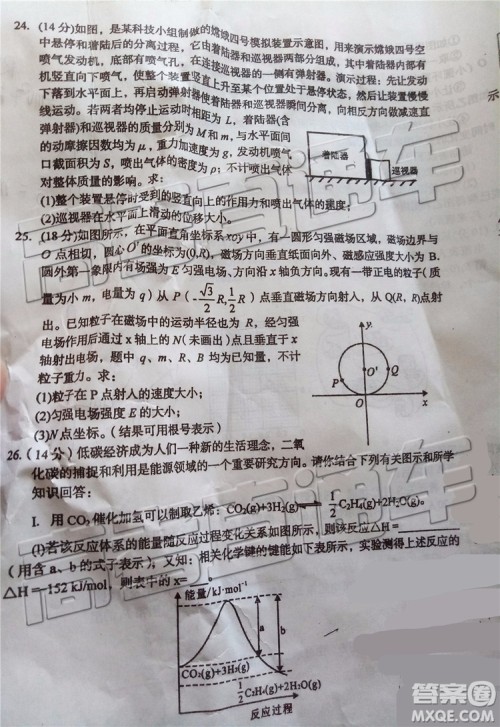 24. (14分)如图，是某科技小组制做的嫦娥四号模拟装置示意图，用来演示嫦娥四号空
中悬停和着陆后的分离过程，它由着陆器和巡视器两部分组成，其中着陆器内部有
喷气发动机，底部有喷气孔，在连接巡视器的一侧有弹射器。演示过程：先让发动
机竖直向下喷气，使整个装置竖直上升至某个位置处于悬停状态，然后让装置慢慢
下落到水平面上，再启动弹射器使着陆器和巡视器瞬间分离，向相反方向做减速直
线运动。若两者均停止运动时相距为L，着陆器(含
弹射器)和巡视器的质量分别为M和m，与水平面间
的动摩擦因数均为μ，重力加速度为g，发动机喷气
口截面积为S，喷出气体的密度为ρ；不计喷出气体
对整体质量的影响。求：
(1)整个装置悬停时受到的竖直向上的作用力和喷出气体的速度；
(2)巡视器在水平面上滑动的位移大小。
着陆器
巡视器
25. (18分)如图所示，在平面直角坐标系xoy中，有一圆形匀强磁场区域，磁场边界与
O点相切，圆心O′的坐标为(0,R)，磁场方向垂直纸面向外、磁感应强度大小为B.
圆外第一象限内有场强为E匀强电场、方向沿x轴负方向。现有一带正电的粒子(质
量为小m，电量为q)从P(-√3/2R,1/2R)点垂直磁场方向射人，从Q(R, R)点射
出。已知粒子在磁场中的运动半径也为R，经匀强
电场作用后通过x轴上的N(未画出)点且垂直于x
轴射出电场，题中q、m、R、B均为已知量，不计
粒子重力。求：
(1)粒子在P点射人的速度大小；
(2)匀强电场强度E的大小；
(3)N点坐标。(结果可用根号表示)
y
P
O′
Q
O
x
26. (14分)低碳经济成为人们一种新的生活理念，二氧
化碳的捕捉和利用是能源领域的一个重要研究方向。请你结合下列有关图示和所学
知识回答：
I. 用CO₂催化加氢可以制取乙烯：CO₂(g)+3H₂(g) ⇌ 1/2C₂H₄(g)+2H₂O(g).
(1)若该反应体系的能量随反应过程变化关系如图所示，则该反应△H =
(用含a、b的式子表示)。又知：相关化学键的键能如下表所示，实验测得上述反应的
△H=-152 kJ/mol，则表中的x=
能量/kJ·mol⁻¹
a
b
CO₂(g)+3H₂(g)
1/2C₂H₄(g)+2H₂O(g)
反应过程
高考直通车
答案圈
MXQE.COM